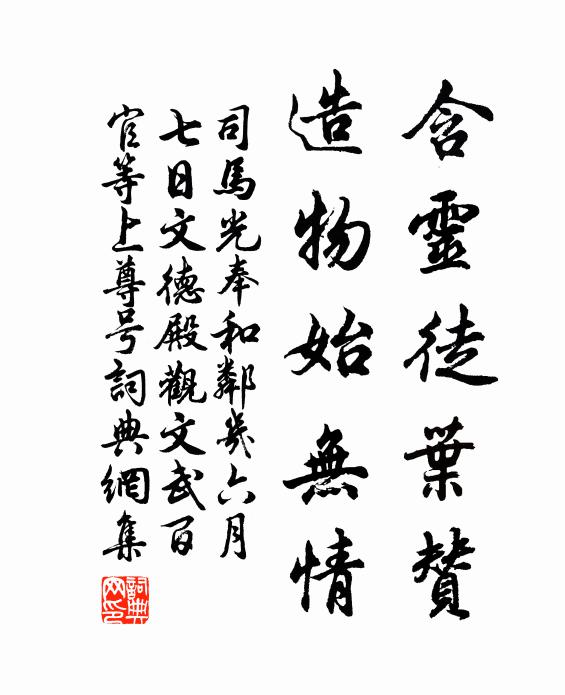 含靈徒葉贊
造物始無情
司馬光奉和鄰幾六月
七日文德殿觀文武百
官等上尊号詞典網集
詞典網印